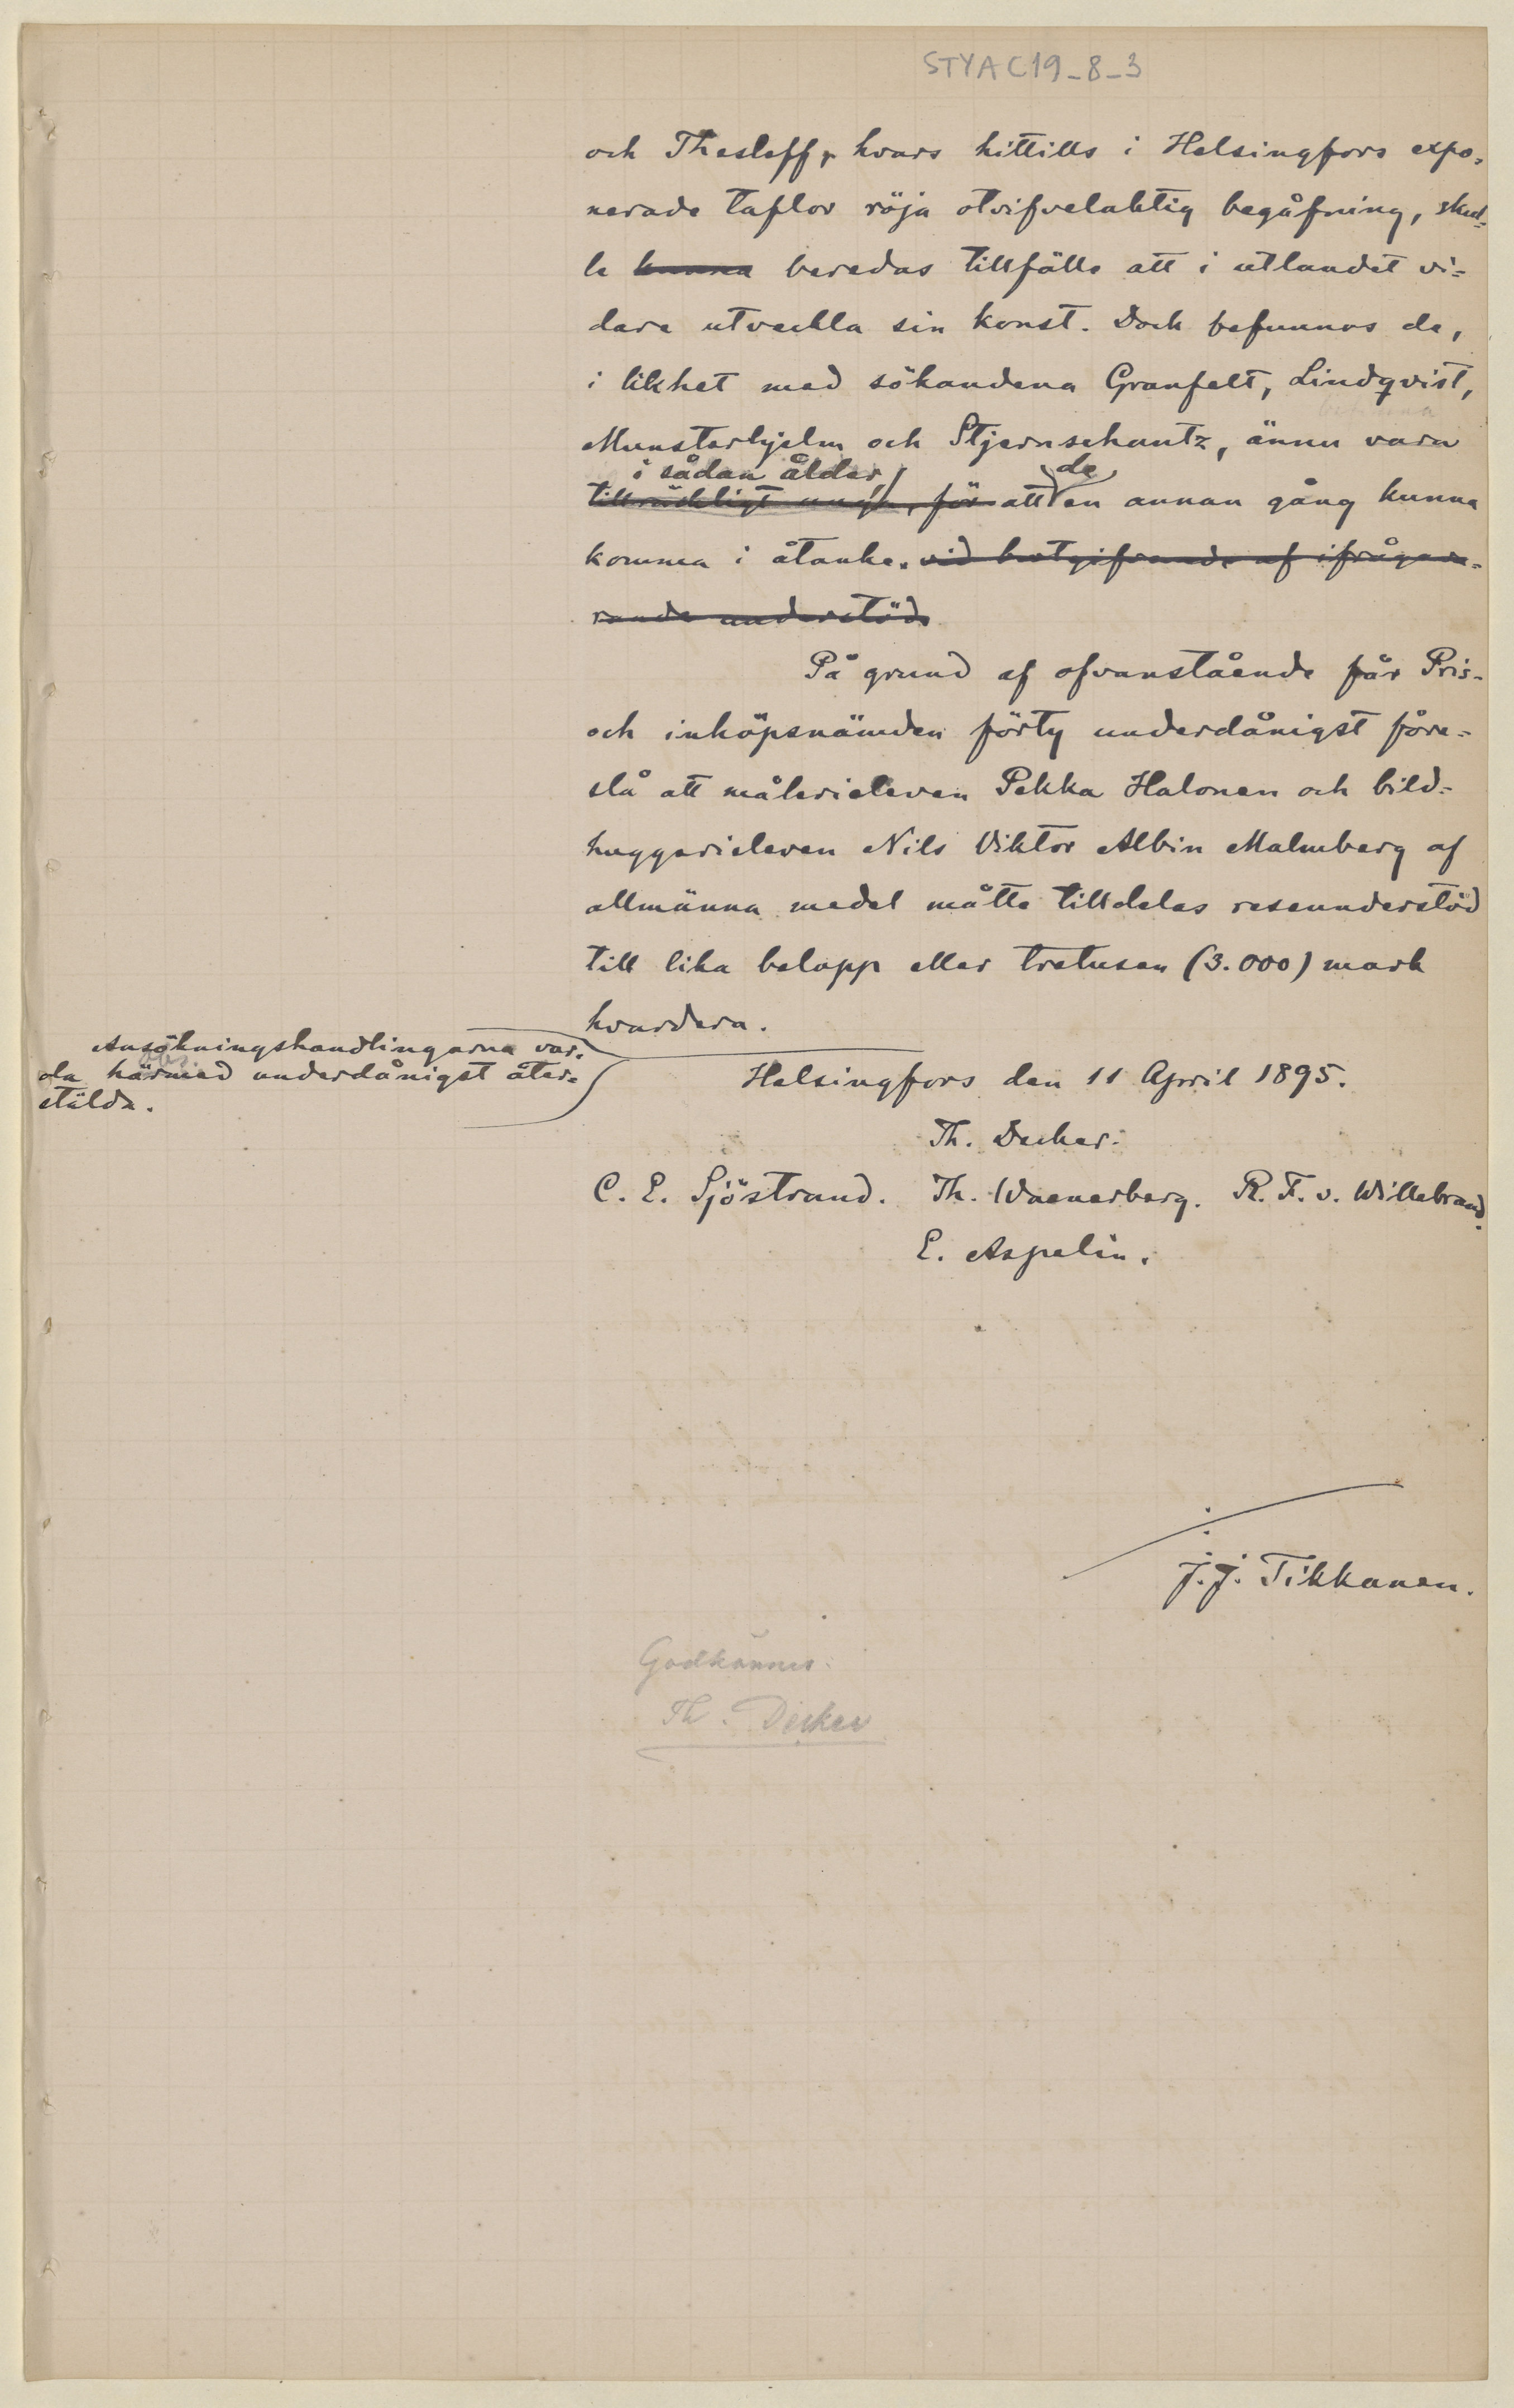 STYA C19_8_3
och Thesleff, hvars hittills i Helsingfors expo-
nerade taflor röja otvifvelaktig begåfning, skul-
le kunna beredas tillfälle att i utlandet vi-
dare utveckla sin konst. Dock befunnos de,
i likhet med sökandena Granfelt, Lindqvist,
befinna
Munsterhjelm och Stjernschantz, ännu vara
i sådan ålder, de
tillräckligt unga, för att en annan gång kunna
komma i åtanke. vid bortgifvande af ifrågava-
rande understöd
På grund af ofvanstående får Pris-
och inköpsnämden förty underdånigst före-
slå att målerieleven Pekka Halonen och bild-
huggerieleven Nils Viktor Albin Malmberg af
allmänna medel måtte tilldelas reseunderstöd
till lika belopp eller tretusen (3.000) mark
hvardera.
Ansökningshandlingarna var-
da härmed underdånigst åter-
stälda.
Helsingfors den 11 April 1895.
Th. Decker.
C. E. Sjöstrand. Th. Waenerberg. R. F. v. Willebrand.
E. Aspelin.
J. J. Tikkanen.
Godkännes:
Th. Decker